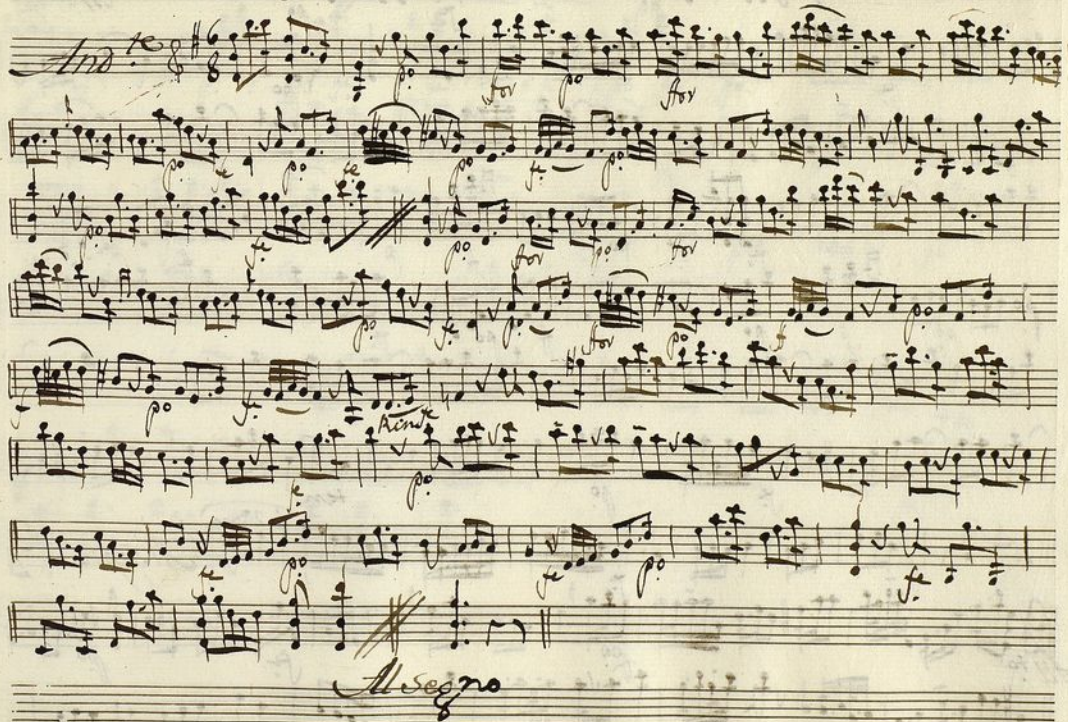 And.te 6 8 po: for po for
po fe po fe po fe: po:
po: fe: po: for po: for
po: fe po: for po f po:
f po fe: Rinf
fe: po:
fe po: fe po: fe
Al segno